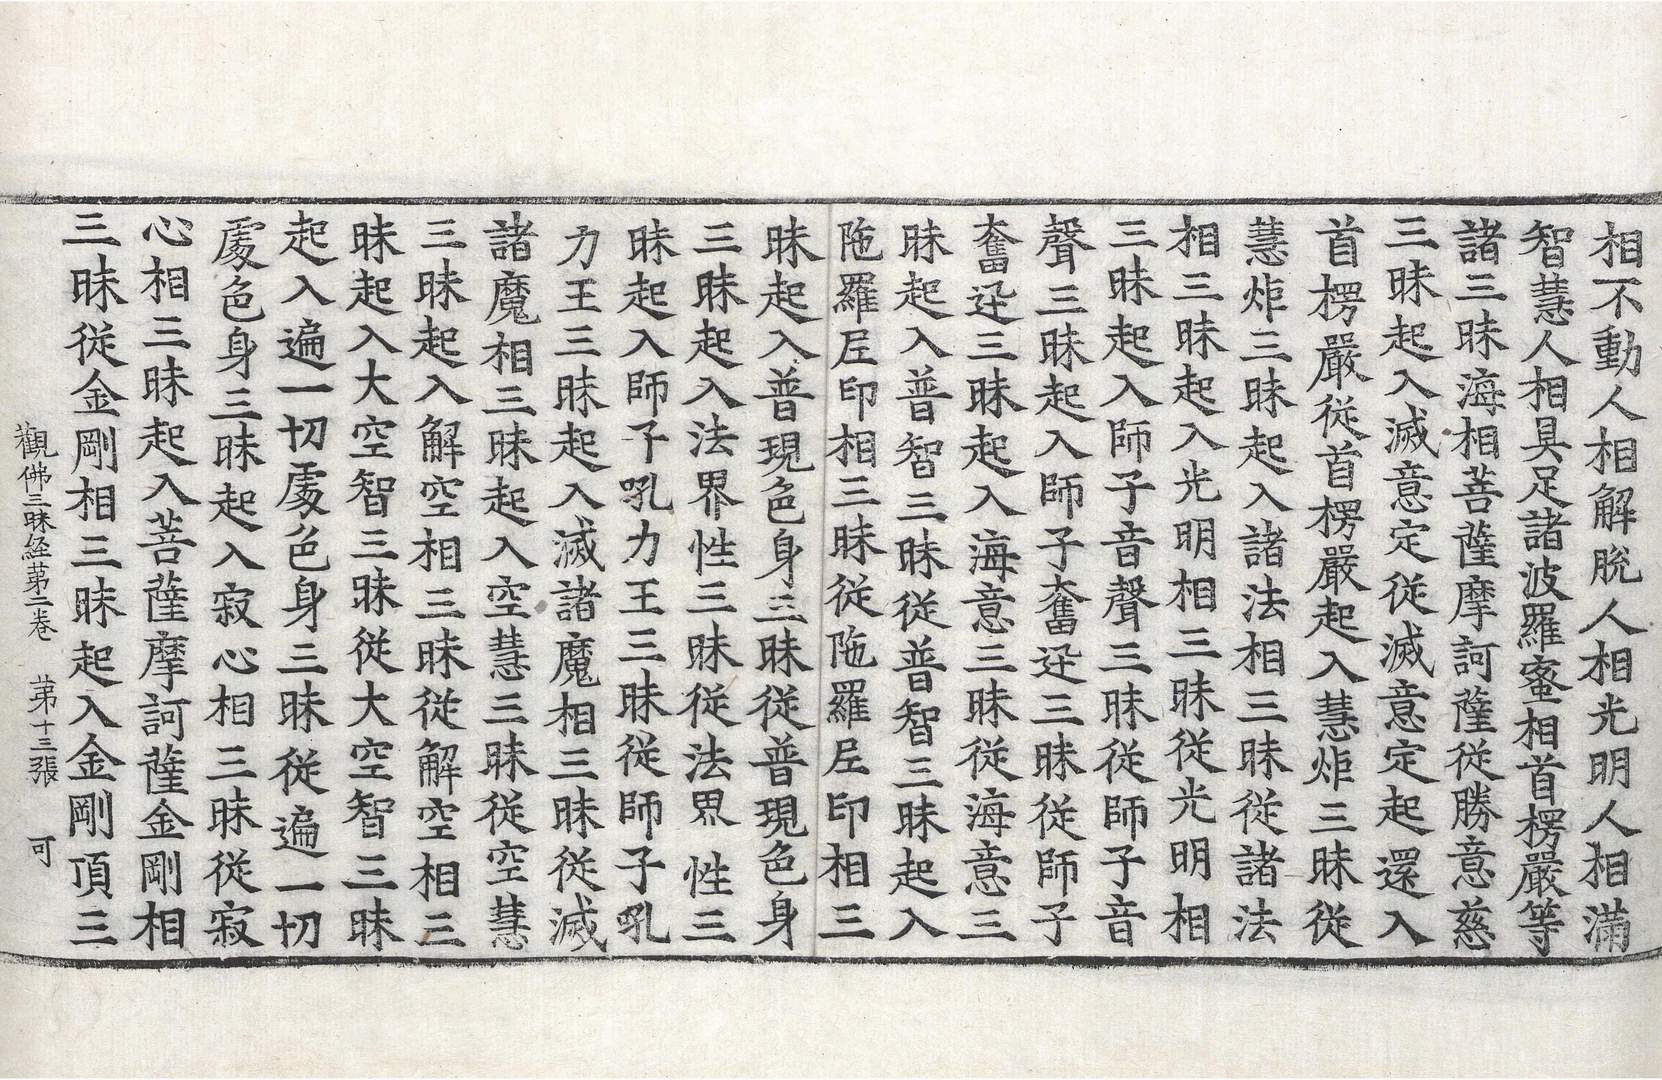 相不動人相解脫人相光明人相滿
智慧人相具足諸波羅蜜相首楞嚴等
諸三昧海相菩薩摩訶薩従勝意慈
三昧起入滅意定従滅意定起還入
首楞嚴従首楞嚴起入慧炬三昧従
慧炬三昧起入諸法相三昧従諸法
相三昧起入光明相三昧従光明相
三昧起入師子音聲三昧従師子音
聲三昧起入師子奮迅三昧従師子
奮迅三昧起入海意三昧従海意三
昧起入普智三昧従普智三昧起入
陁羅尼印相三昧従陁羅尼印相三
昧起入普現色身三昧従普現色身
三昧起入法界性三昧従法界性三
昧起入師子吼力王三昧従師子吼
力王三昧起入滅諸魔相三昧従滅
諸魔相三昧起入空慧三昧従空慧
三昧起入解空相三昧従解空相三
昧起入大空智三昧従大空智三昧
起入遍一切處色身三昧従遍一切
處色身三昧起入寂心相三昧従寂
心相三昧起入菩薩摩訶薩金剛相
三昧従金剛相三昧起入金剛頂三
觀佛三昧経苐二卷 苐十三張 可